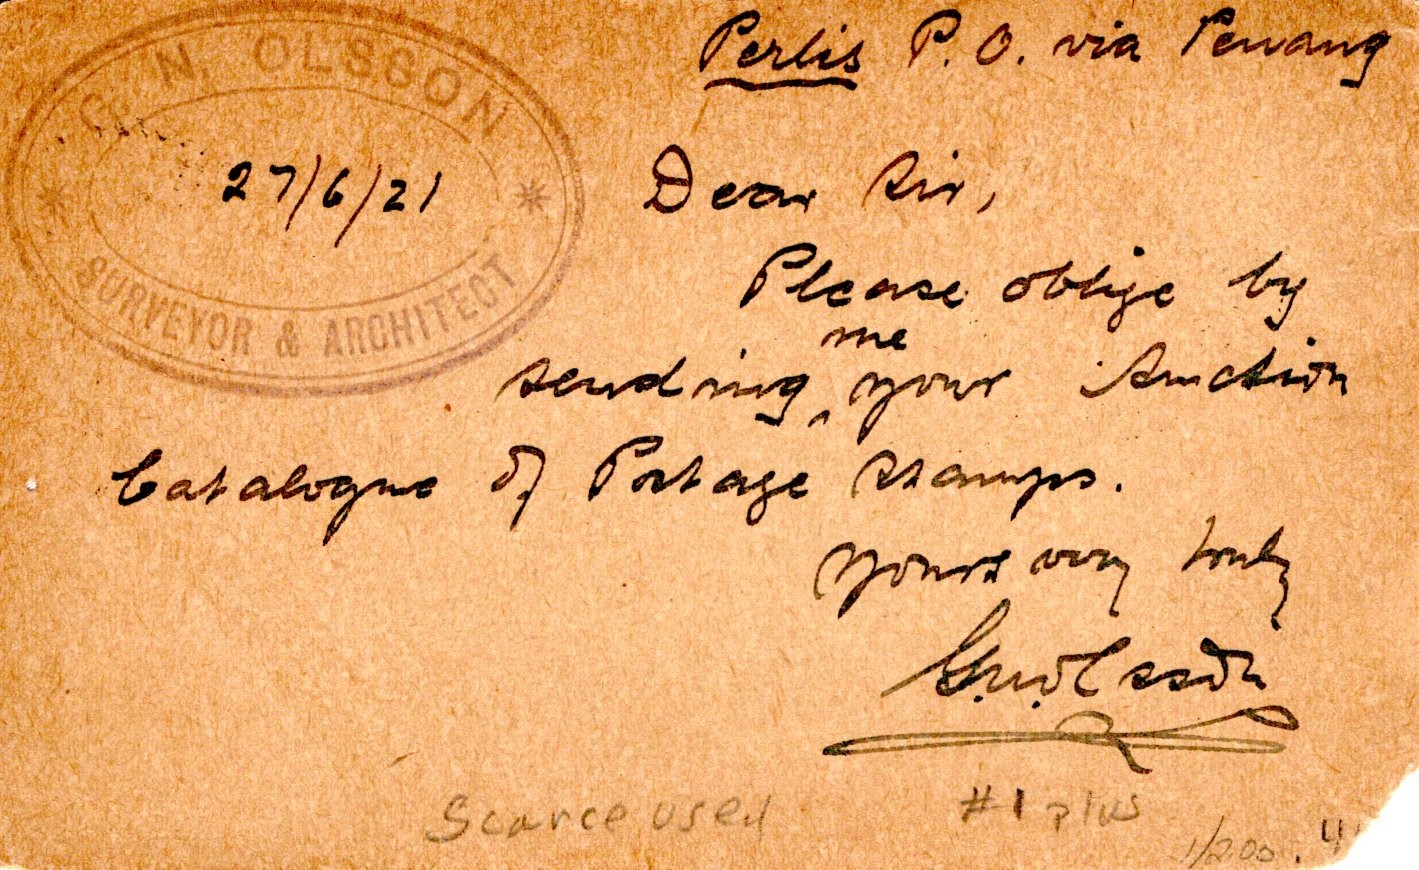 G. N. OLSSON
SURVEYOR & ARCHITECT
27/6/21
Perlis P.O. via Penang
Dear Sir,
Please oblige by
me
sending ^ your Auction
Catalogue of Postage Stamps.
Yours very truly
G.N.Olsson
Scarce used #1 plus
1/200.